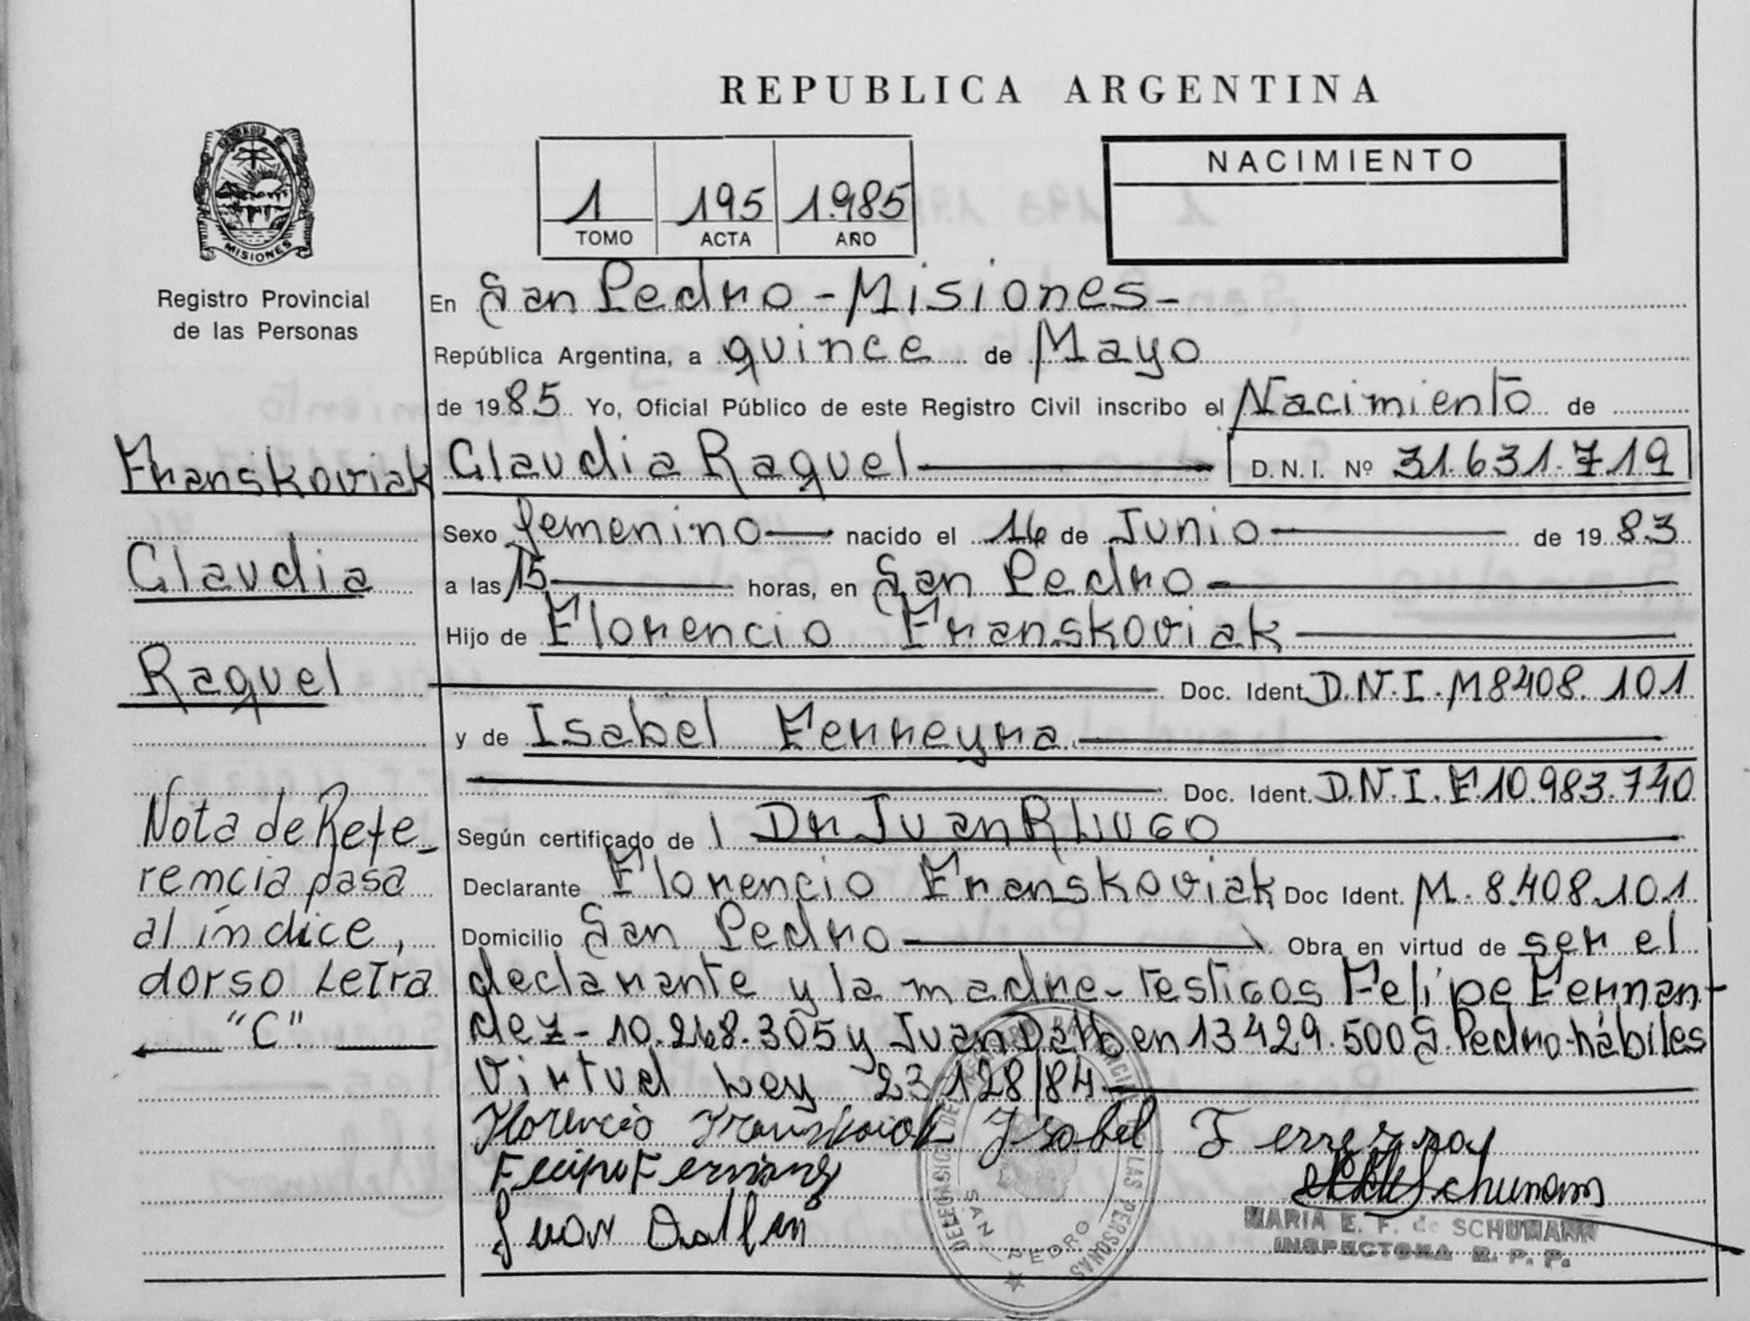 REPUBLICA ARGENTINA
MISIONES
Registro Provincial
de las Personas
1 195 1.985
TOMO ACTA AÑO
NACIMIENTO
En San Pedro - Misiones -
República Argentina, a quince de Mayo
de 1985 Yo, Oficial Público de este Registro Civil inscribo el Nacimiento de
Franskoviak Claudia Raquel D.N.I. Nº 31.631.719
Sexo femenino nacido el 16 de Junio de 1983
Claudia
a las 15 horas, en San Pedro
Hijo de Florencio Franskoviak
Raquel
Doc. Ident. D.N.I. M 8408.101
y de Isabel Ferreyra
Doc. Ident. D.N.I. F 10.983.740
Nota de Refe-
rencia pasa
al índice,
dorso Letra
"C".
Según certificado de Dr Juan R Lugo
Declarante Florencio Franskoviak Doc Ident. M. 8.408.101
Domicilio San Pedro Obra en virtud de ser el
declarante y la madre - testigos Felipe Fernan-
dez - 10.268.305 y Juan en 13429.500 S. Pedro-hábiles
Virtud Ley 23.128/84
Florencio Franskoviak Isabel Ferreyra
Felipe Fernandez
Juan
Schumann
DELEGACION DEL REGISTRO PROVINCIAL DE LAS PERSONAS
SAN PEDRO
MARIA E. F. de SCHUMANN
INSPECTORA R. P. P.